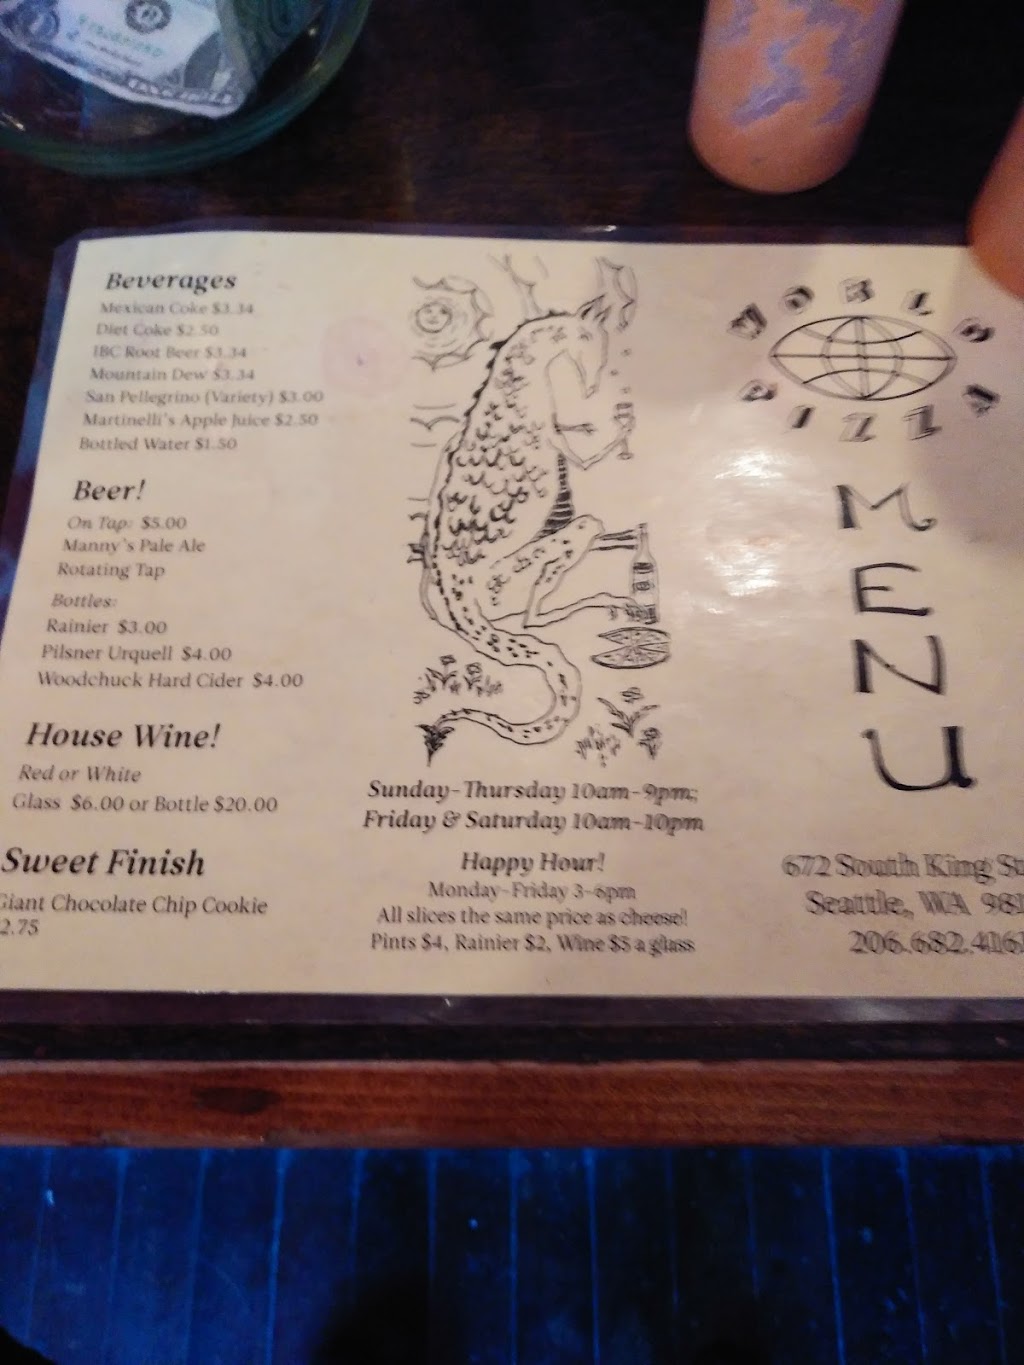 Beverages
Mexican Coke $3.34
Diet Coke $2.50
IBC Root Beer $3.34
Mountain Dew $3.34
San Pellegrino (Variety) $3.00
Martinelli's Apple Juice $2.50
Bottled Water $1.50
Beer!
On Tap: $5.00
Manny's Pale Ale
Rotating Tap
Bottles:
Rainier $3.00
Pilsner Urquell $4.00
Woodchuck Hard Cider $4.00
House Wine!
Red or White
Glass $6.00 or Bottle $20.00
Sweet Finish
Giant Chocolate Chip Cookie
2.75
Sunday-Thursday 10am-9pm;
Friday & Saturday 10am-10pm
Happy Hour!
Monday-Friday 3-6pm
All slices the same price as cheese!
Pints $4, Rainier $2, Wine $5 a glass
WORLD
PIZZA
MENU
672 South King St
Seattle, WA 981
206.682.4161